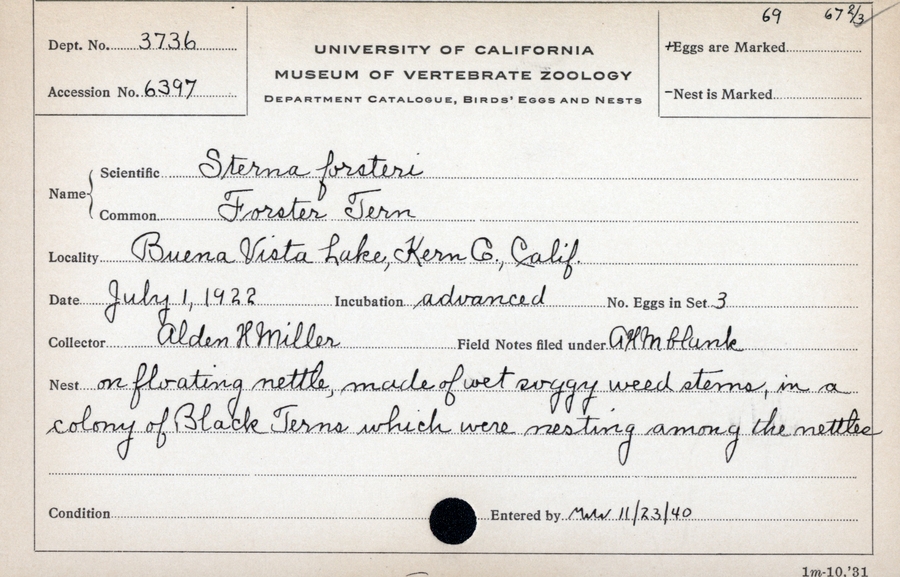 69 67 2/3
Dept. No. 3736
UNIVERSITY OF CALIFORNIA
+Eggs are Marked
MUSEUM OF VERTEBRATE ZOOLOGY
Accession No. 6397
DEPARTMENT CATALOGUE, BIRDS' EGGS AND NESTS
-Nest is Marked
Name { Scientific Sterna forsteri
Common Forster Tern
Locality Buena Vista Lake, Kern Co., Calif.
Date July 1, 1922 Incubation advanced No. Eggs in Set 3
Collector Alden H Miller Field Notes filed under AHM blank
Nest on floating nettle, made of wet soggy weed stems, in a
colony of Black Terns which were nesting among the nettles
Condition Entered by 11/23/40
1m-10,'31